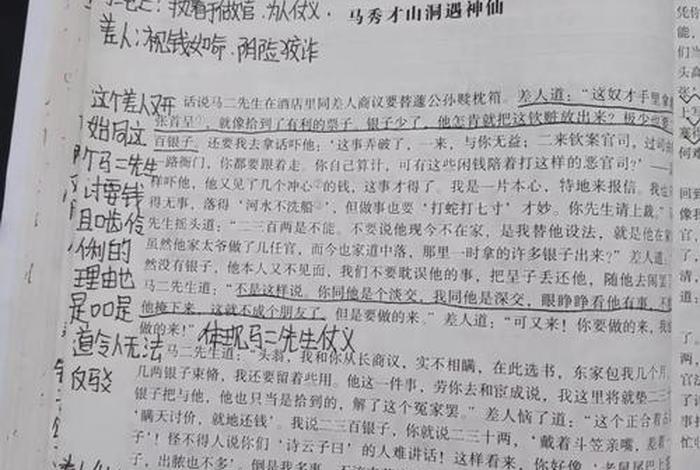 马二先生：执着于做官，为人仗义，
差人：视钱如命，阴险狡诈
马秀才山洞遇神仙
这个差人又开
始同这
个马二先生
讨要钱
且啮伶
俐的
理由也
是叩是
道令人无法
反驳
话说马二先生在酒店里同差人商议要替蘧公孙赎枕箱。差人道：“这奴才手里拿
张首呈，就像拾到了有利的票子，银子少了，他怎肯就把这钦赃放出来？极少也要
百银子。还要我去拿话吓他：‘这事弄破了，一来，与你无益；二来钦案官司，过司
一路衙门，你都要跟着走。你自己算计，可有这些闲钱陪着打这样的恶官司？’——
样吓他，他又见了几个冲心的钱，这事才得了。我是一片本心，特地来报信。我也
得无事，落得‘河水不洗船’，但做事也要‘打蛇打七寸’才妙。你先生请上裁。”
先生摇头道：“二三百两是不能。不要说他现今不在家，是我替他设法，就是他在
虽然他家太爷做了几任官，而今也家道中落，那里一时拿的许多银子出来？”差人
然没有银子，他本人又不见面，我们不要耽误他的事，把呈子丢还他，随他去闹罢
马二先生道：“不是这样说。你同他是个淡交，我同他是深交，眼睁睁看他有事，不
他掩下来，这就不成个朋友了。但是要做的来。”差人道：“可又来！你要做的来，我
做的来！”
体现马二先生仗义
马二先生道：“头翁，我和你从长商议，实不相瞒，在此选书，东家包我几个月
几两银子束脩，我还要留着些用。他这一件事，劳你去和宦成说，我这里将就垫二
银子把与他，他也只当是拾到的，解了这个冤家罢。”差人恼了道：“这个正合着
‘瞒天讨价，就地还钱’。我说二三百银子，你就说二三十两，‘戴着斗笠亲嘴，差着
子’！怪不得人说你们‘诗云子曰’的人难讲话！这样看来，你好像‘老鼠尾巴上
子，出脓也不多’。倒是我多事，